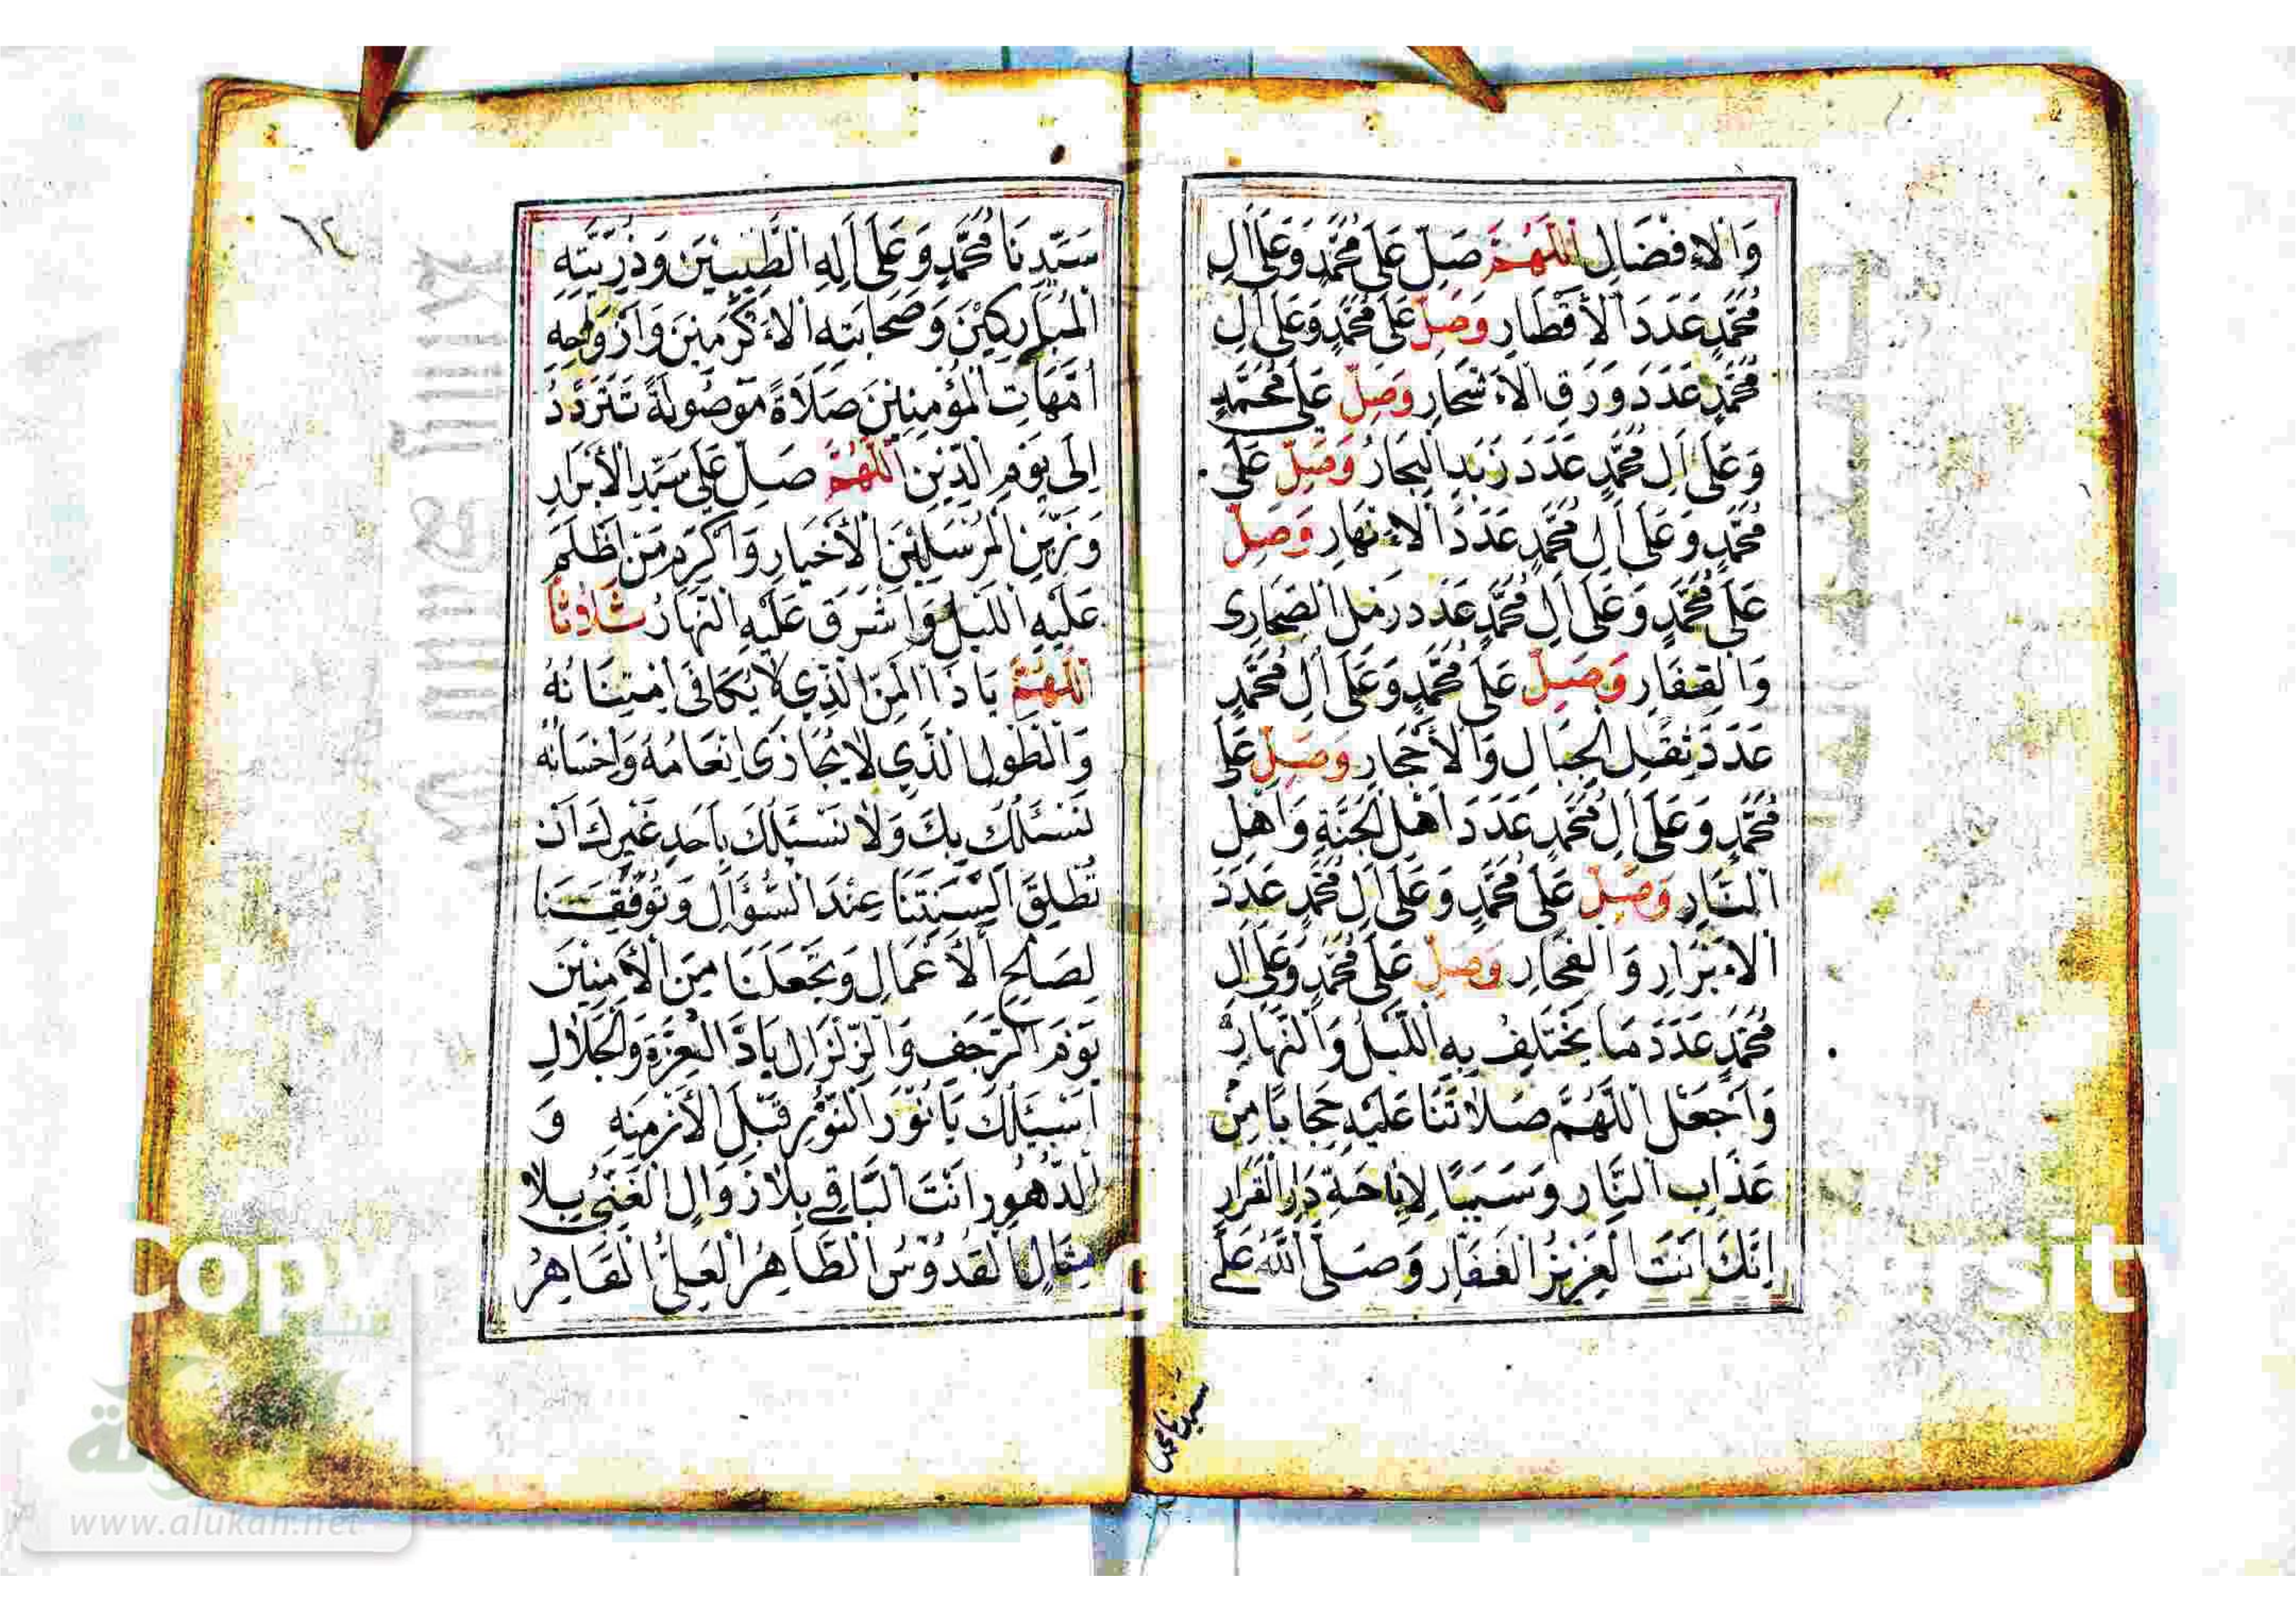 وَالْاِفْضَالِ اَللّٰهُمَّ صَلِّ عَلَى مُحَمَّدٍ وَعَلَى اٰلِ
مُحَمَّدٍ عَدَدَ الْأَقْطَارِ وَصَلِّ عَلَى مُحَمَّدٍ وَعَلَى اٰلِ
مُحَمَّدٍ عَدَدَ وَرَقِ الْاَشْجَارِ وَصَلِّ عَلَى مُحَمَّدٍ
وَعَلَى اٰلِ مُحَمَّدٍ عَدَدَ زَبَدِ الْبِحَارِ وَصَلِّ عَلَى
مُحَمَّدٍ وَعَلَى اٰلِ مُحَمَّدٍ عَدَدَ الْاَنْهَارِ وَصَلِّ
عَلَى مُحَمَّدٍ وَعَلَى اٰلِ مُحَمَّدٍ عَدَدَ رَمْلِ الصَّحَارِى
وَالْقِفَارِ وَصَلِّ عَلَى مُحَمَّدٍ وَعَلَى اٰلِ مُحَمَّدٍ
عَدَدَ ثِقَلِ الْجِبَالِ وَالْأَحْجَارِ وَصَلِّ عَلَى
مُحَمَّدٍ وَعَلَى اٰلِ مُحَمَّدٍ عَدَدَ اَهْلِ الْجَنَّةِ وَاَهْلِ
النَّارِ وَصَلِّ عَلَى مُحَمَّدٍ وَعَلَى اٰلِ مُحَمَّدٍ عَدَدَ
الْاَبْرَارِ وَالْفُجَّارِ وَصَلِّ عَلَى مُحَمَّدٍ وَعَلَى اٰلِ
مُحَمَّدٍ عَدَدَ مَا يَخْتَلِفُ بِهِ اللَّيْلُ وَالنَّهَارُ
وَاجْعَلِ اللّٰهُمَّ صَلَاتَنَا عَلَيْهِ حِجَابًا مِنْ
عَذَابِ النَّارِ وَسَبَبًا لِاِبَاحَةِ دَارِ الْقَرَارِ
اِنَّكَ اَنْتَ الْعَزِيْزُ الْغَفَّارِ وَصَلَّى اللّٰهُ عَلَى
سيدنا محمد
٦٢
سَيِّدِنَا مُحَمَّدٍ وَعَلَى اٰلِهِ الطَّيِّبِيْنَ وَذُرِّيَّتِهِ
الْمُبَارَكِيْنَ وَصَحَابَتِهِ الْاَكْرَمِيْنَ وَاَزْوَاجِهِ
اُمَّهَاتِ الْمُؤْمِنِيْنَ صَلَاةً مَوْصُولَةً تَتَرَدَّدُ
اِلَى يَوْمِ الدِّيْنِ اَللّٰهُمَّ صَلِّ عَلَى سَيِّدِ الْأَبْرَارِ
وَزَيْنِ الْمُرْسَلِيْنَ الْأَخْيَارِ وَاَكْرَمِ مَنْ اَظْلَمَ
عَلَيْهِ اللَّيْلُ وَاَشْرَقَ عَلَيْهِ النَّهَارُ ثَلَاثًا
اَللّٰهُمَّ يَا ذَا الْمَنِّ الَّذِي لَا يُكَافَى اِمْتِنَانُهُ
وَالطَّوْلِ الَّذِي لَا يُجَازَى اِنْعَامُهُ وَاِحْسَانُهُ
نَسْئَلُكَ بِكَ وَلَا نَسْئَلُكَ بِاَحَدٍ غَيْرِكَ اَنْ
تُطْلِقَ اَلْسِنَتَنَا عِنْدَ السُّؤَالِ وَتُوَفِّقَنَا
لِصَالِحِ الْأَعْمَالِ وَتَجْعَلَنَا مِنَ الْأٰمِنِيْنَ
يَوْمَ الرَّجْفِ وَالزِّلْزَالِ يَا ذَا الْعِزَّةِ وَالْجَلَالِ
اَسْئَلُكَ يَا نُوْرَ النُّوْرِ قَبْلَ الْأَزْمِنَةِ وَ
الدُّهُوْرِ اَنْتَ الْبَاقِي بِلَا زَوَالٍ الْغَنِيُّ بِلَا
مِثَالٍ الْقُدُّوْسُ الطَّاهِرُ الْعَلِيُّ الْقَاهِرُ
www.alukah.net